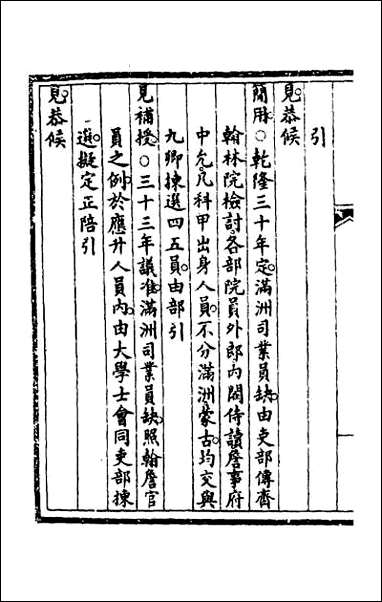 引
見恭候
簡用○乾隆三十年定滿洲司業員缺由吏部傳齊
翰林院檢討各部院員外郎內閣侍讀詹事府
中允凡科甲出身人員不分滿洲蒙古均交與
九卿揀選四五員由部引
見補授○三十三年議准滿洲司業員缺照翰詹官
員之例於應升人員內由大學士會同吏部揀
選擬定正陪引
見恭候